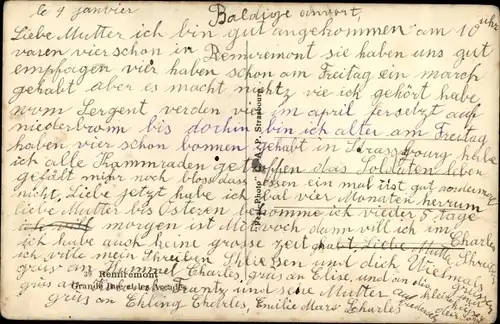 le 4 janvier Baldige antwort,
Liebe Mutter ich bin gut angekommen am 10 uhr
varen vier schon in Remiremont sie haben uns gut
empfagen vier haben schon am Freitag ein march
gehabt aber es macht nichtz vie ich gehört habe
vom Sergent verden vie im april fersetzt auf
niederbronn bis dorhin bin ich alter am Freitag
haben vier schon bonnen gehabt in Strassbourg habe
ich alle Kammraden getroffen das Soldaten leben
gefält mihr noch bloss das essen ein mal ist gut
nicht, Liebe jetzt habe ich bal vier Monaten herrum
liebe Mutter bis Osteren bekomme ich vieder 5 tage
morgen ist Mitwoch dann vill ich im
ich habe auch keine grosse zeit gehabt Liebe Mutter
ich vill mein Schreiben Schliessen und dich Vielmals
grüs an Charles, grüs an Elise, und an die
grüs an und seine Mutter auf
grüs an Ehling Charles, Emilie Charles
39 Remiremont
"Real-Photo" C. A. P. Strasbourg